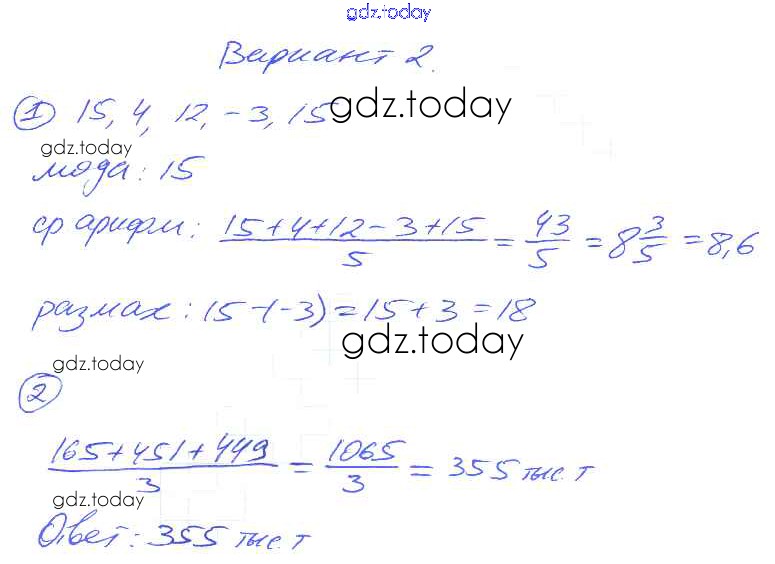 gdz.today
Вариант 2.
① 15, 4, 12, -3, 15
gdz.today
gdz.today
мода: 15
ср арифм: (15+4+12-3+15)/5 = 43/5 = 8 3/5 = 8,6
размах: 15-(-3)=15+3=18
gdz.today
gdz.today
②
(165+451+449)/3 = 1065/3 = 355 тыс. т
gdz.today
Ответ: 355 тыс. т